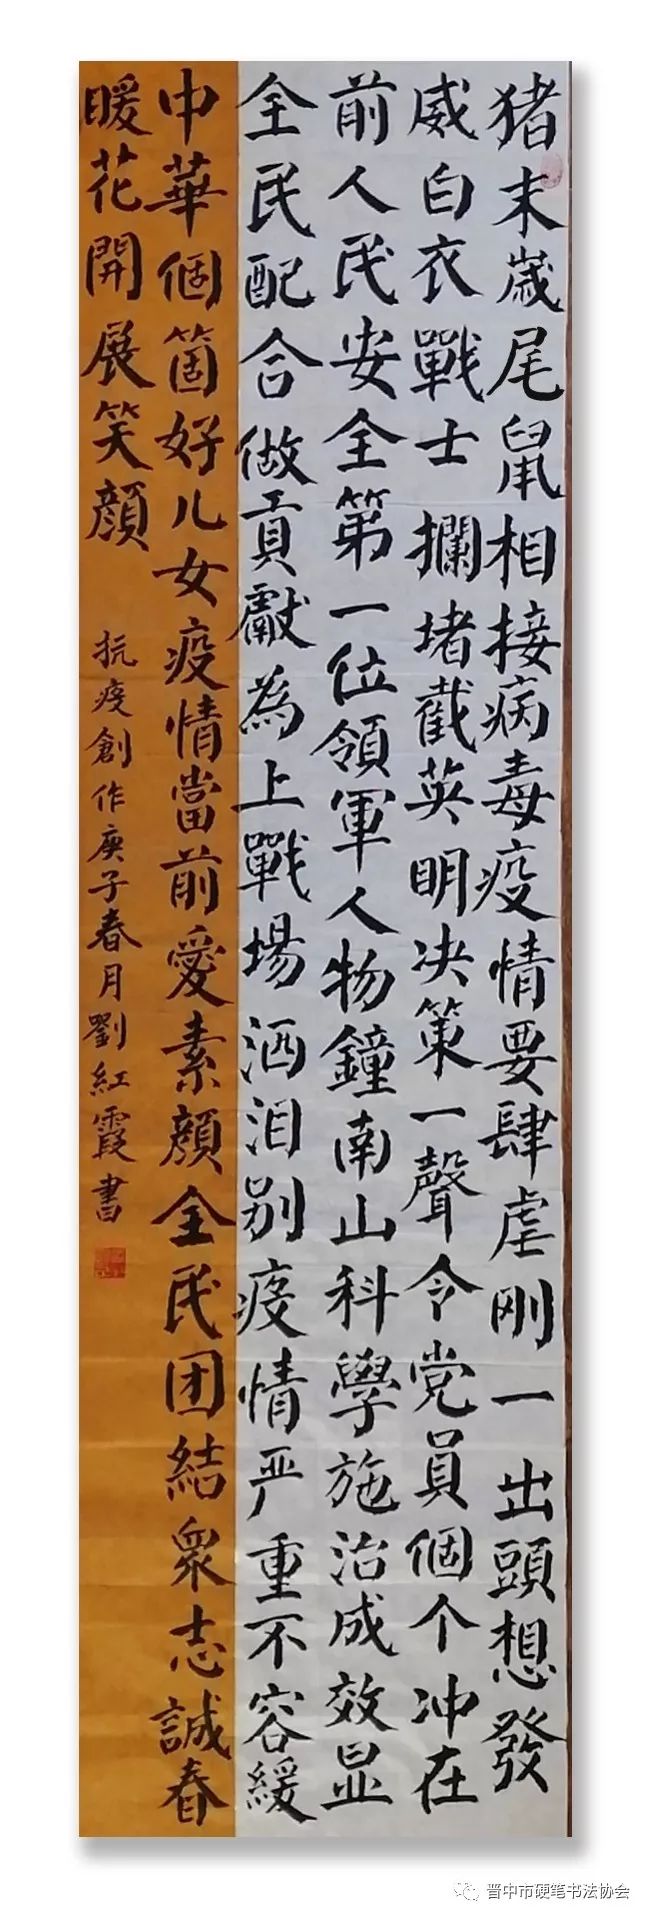 猪末嵗尾鼠相接病毒疫情要肆虐刚一出頭想發
威白衣戰士攔堵截英明决策一聲令党員個个冲在
前人民安全第一位領軍人物鐘南山科學施治成效显
全民配合做貢獻為上戰場洒泪别疫情严重不容緩
中華個箇好儿女疫情當前愛素顔全民团結衆志誠春
暖花開展笑顔
抗疫創作庚子春月劉紅霞書
晋中市硬笔书法协会